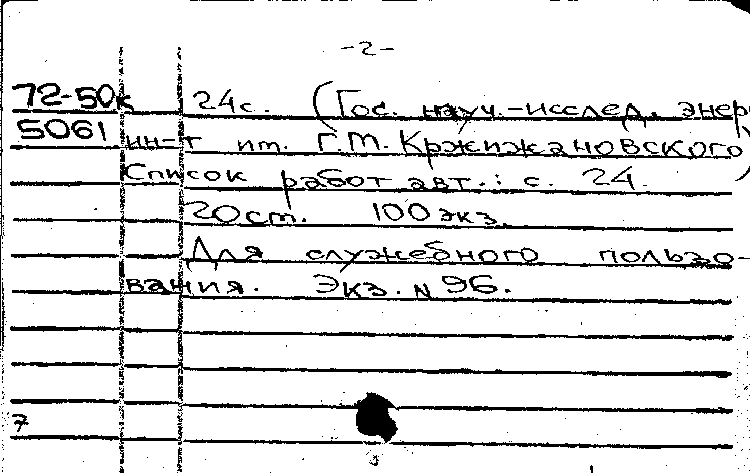 -2-
72-50к 24с. (Гос. науч.-исслед. энер
5061 ин-т им. Г.М. Кржижановского)
Список работ авт.: с. 24.
20 см. 100 экз.
Для служебного пользо-
вания. Экз. N 96.
7